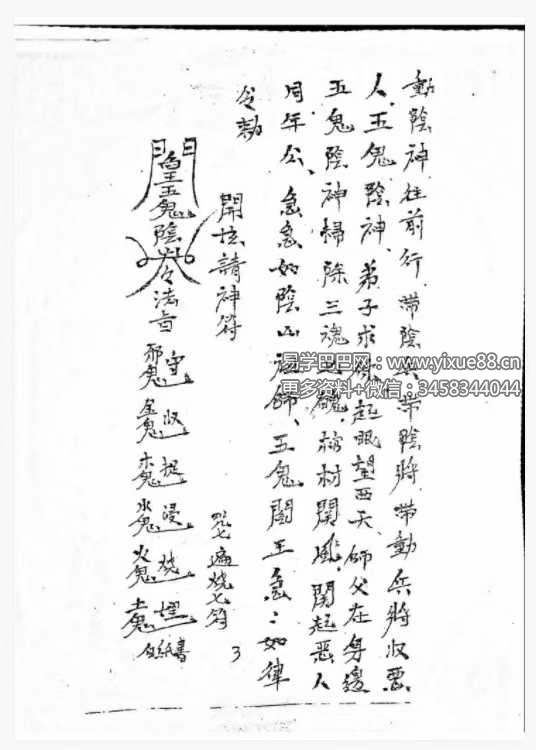 動陰神往前行、帶陰兵帶陰將、帶動兵將收惡
人、五鬼陰神、弟子求你起眼望西天、師父在身邊
五鬼陰神掃除三魂七魄、棺材關風、關起惡人
同年公、急急如陰山祖師、五鬼閻王急：如律
令勅
開坛請神符
咒七遍烧七符
3
五鬼陰
令法旨
邪鬼守
金鬼収
木鬼捉
水鬼浸
火鬼烧
土鬼埋
白紙書
易学巴巴网：www.yixue88.cn
更多资料+微信：3458344044